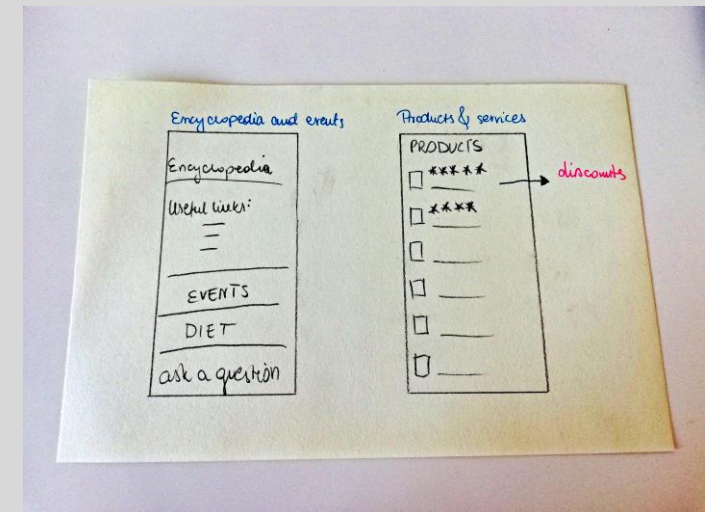 Encyclopedia and events
Encyclopedia
Useful links:
EVENTS
DIET
ask a question
Products & services
PRODUCTS
*****
discounts
****